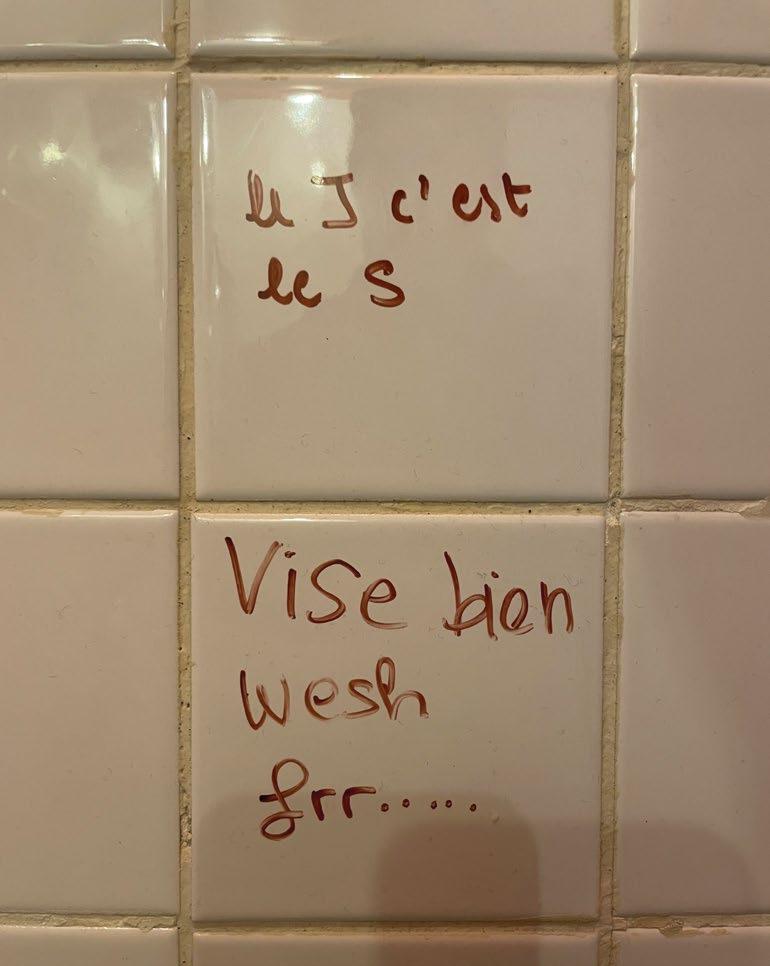 le J c'est
le S
Vise bien
wesh
frr.....